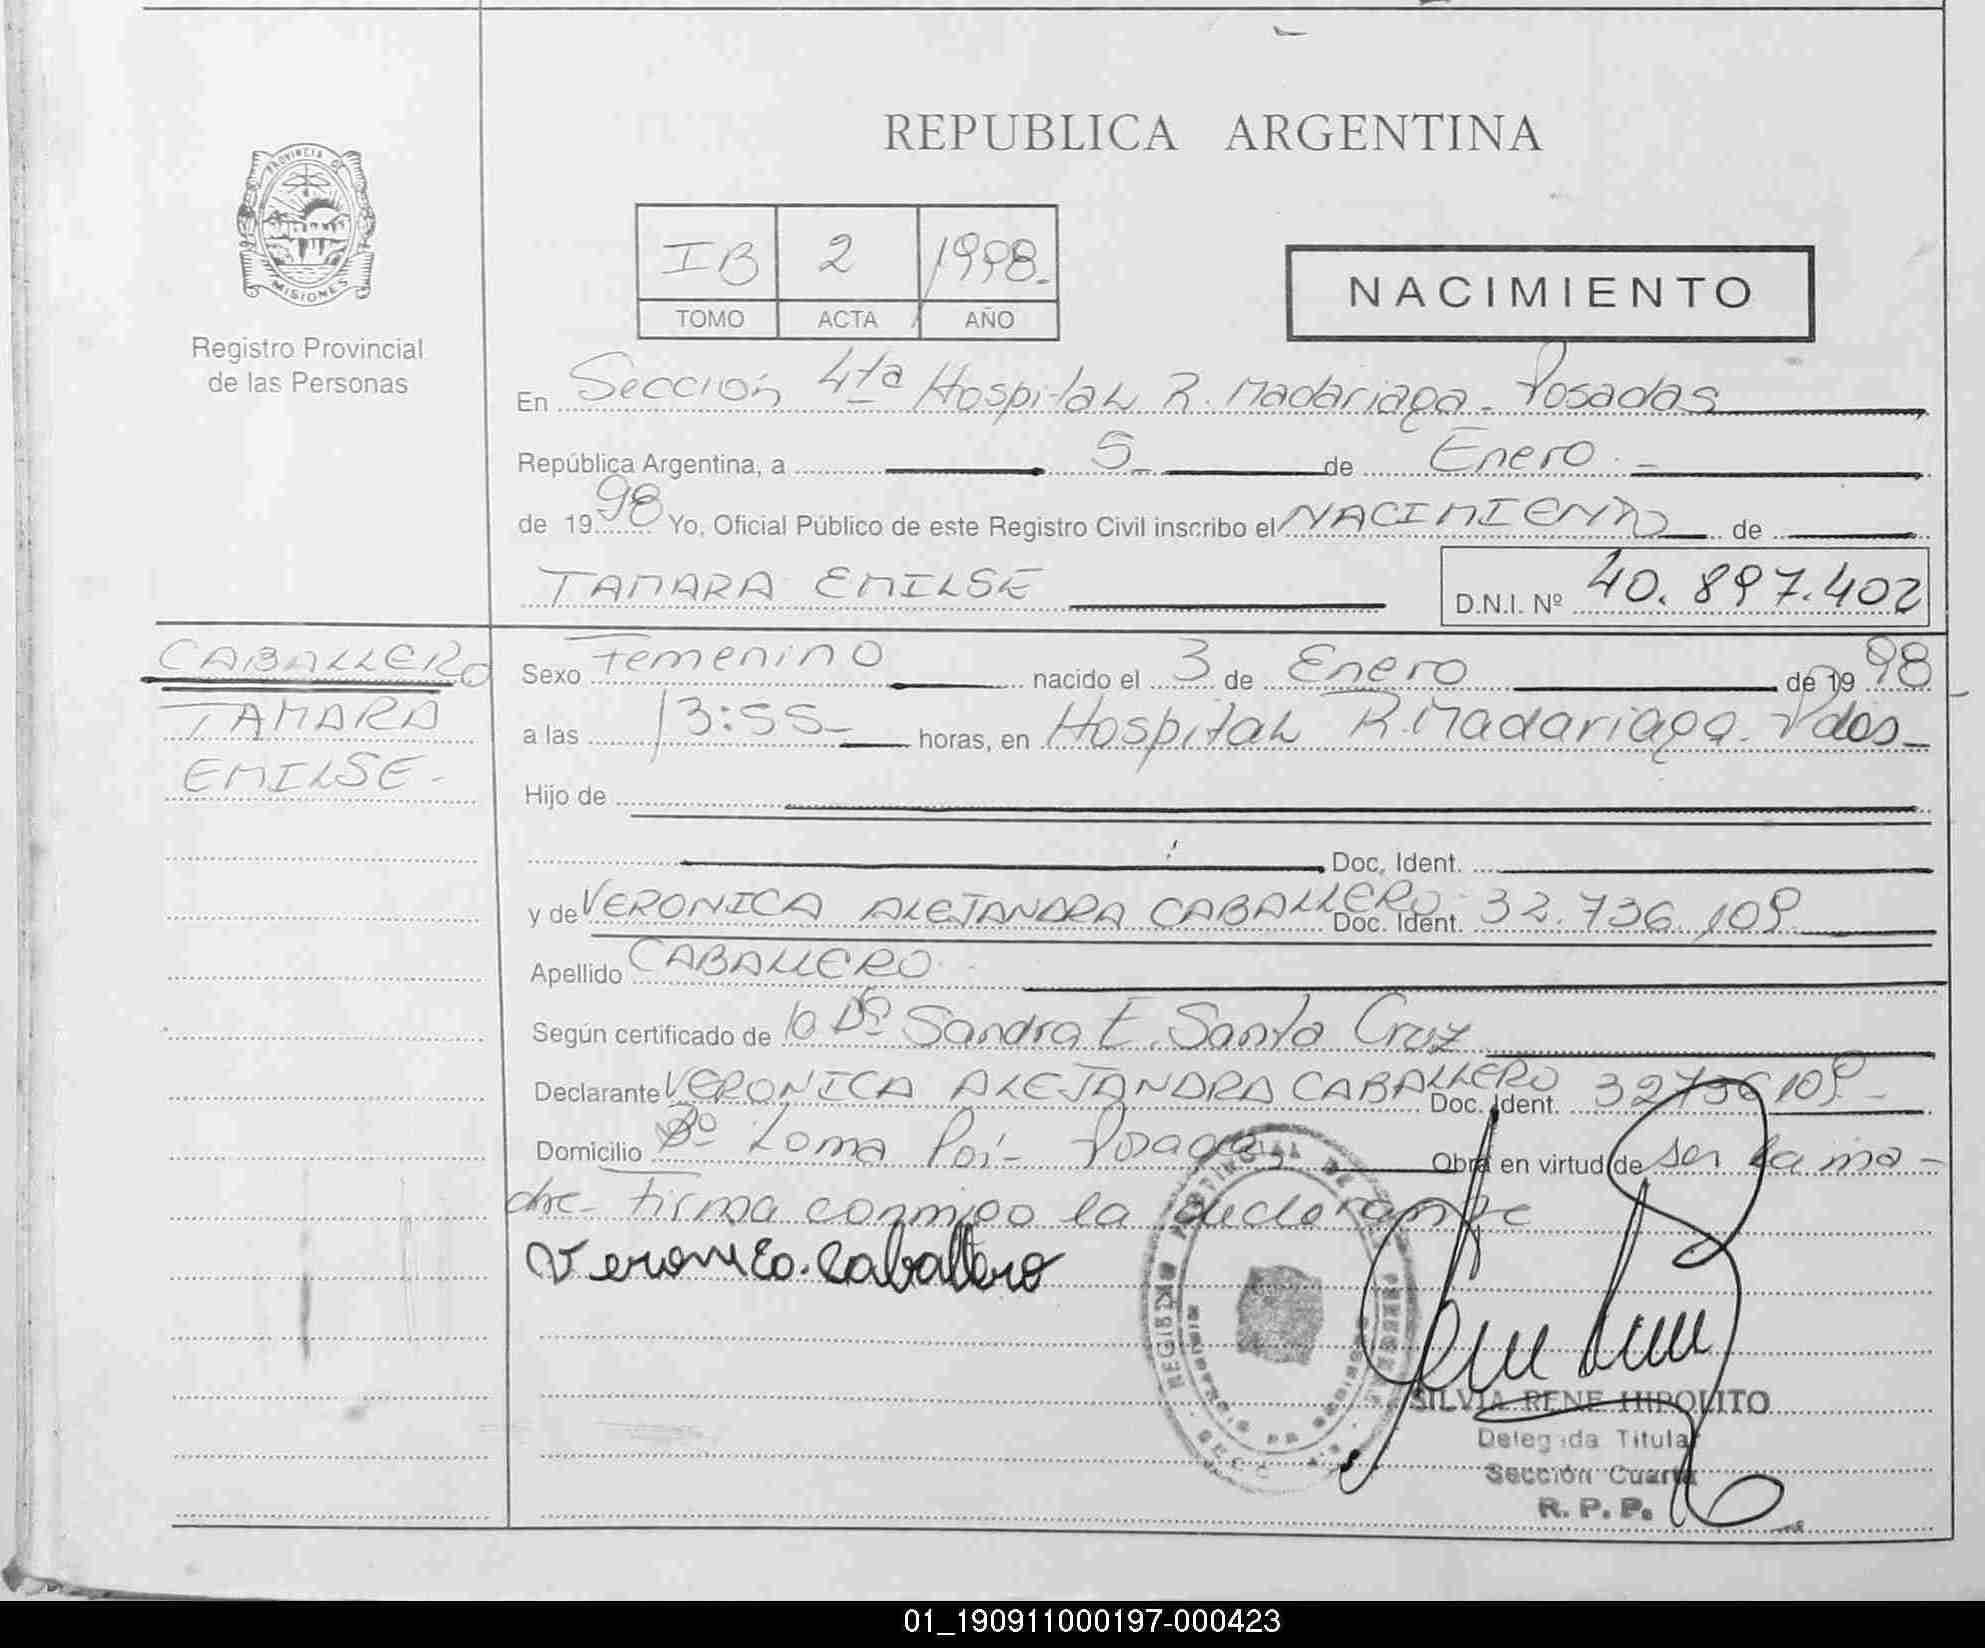 REPUBLICA ARGENTINA
PROVINCIA DE
MISIONES
Registro Provincial
de las Personas
IB 2 1998.-
TOMO ACTA AÑO
NACIMIENTO
En Sección 4ta Hospital R. Madariaga - Posadas
República Argentina, a 5 de Enero.-
de 1998 Yo, Oficial Público de este Registro Civil inscribo el NACIMIENTO de
TAMARA EMILSE D.N.I. Nº 40.897.402
CABALLERO
TAMARA
EMILSE.-
Sexo Femenino nacido el 3 de Enero de 1998
a las 13:55 horas, en Hospital R. Madariaga. Pdas-
Hijo de
Doc. Ident.
y de VERONICA ALEJANDRA CABALLERO Doc. Ident. 32.736.109
Apellido CABALLERO
Según certificado de la Sandra E. Santa Cruz
Declarante VERONICA ALEJANDRA CABALLERO Doc. Ident. 32736109-
Domicilio Bº Loma Poí- Posadas Obra en virtud de ser la ma-
dre- Firma conmigo la declarante
Veronica Caballero
SILVIA RENE HIPOLITO
Delegada Titular
Sección Cuarta
R. P. P.
01_190911000197-000423